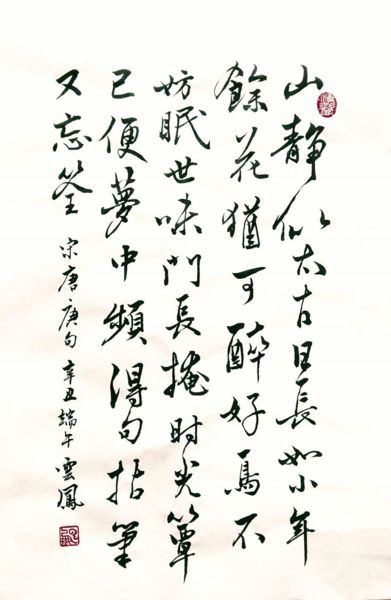 山靜似太古日長如小年
餘花猶可醉好鳥不
妨眠世味門長掩时光簟
已便夢中頻得句拈筆
又忘筌
宋唐庚句辛丑端午雲鳳